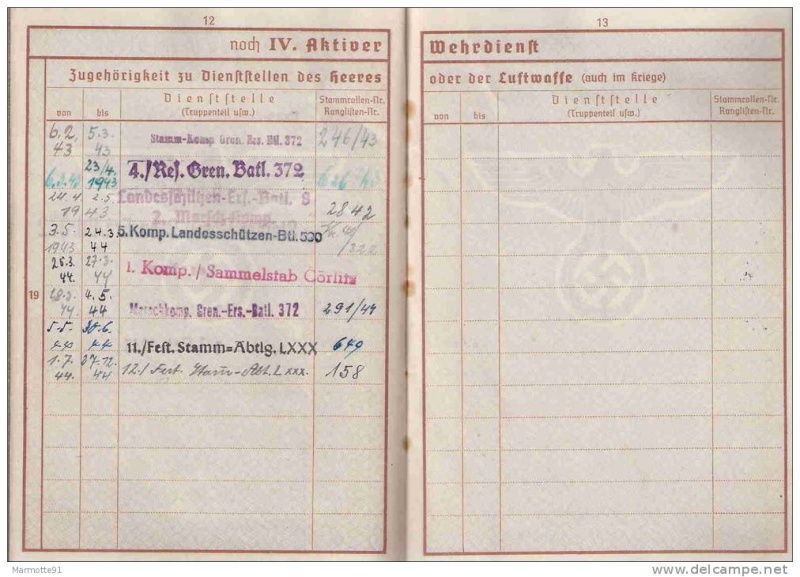 12
noch IV. Aktiver
Zugehörigkeit zu Dienststellen des Heeres
von bis Dienststelle (Truppenteil usw.) Stammrollen-Nr. Ranglisten-Nr.
6.2. 43 5.3. 43 Stamm-Komp. Gren. Ers. Btl. 372 246/43
23/4. 1943 4./Res. Gren. Batl. 372
24.4. 2.5. Landesschützen-Ers.-Batl. 9
1943 2. Marsch-Komp. 2842
3.5. 1943 24.3. 44 5. Komp. Landesschützen-Btl. 590 /222
44. 27.3. 44 1. Komp. / Sammelstab Görlitz
19
44. 4.5. 44 Marschkomp. Gren.-Ers.-Batl. 372 291/44
5.5. 44 30.6. 44 11./Fest. Stamm=Abtlg. LXXX 649
1.7. 44. 27.12. 44 12./ Fest. Stamm-Abt. LXXX. 158
13
Wehrdienst
oder der Luftwaffe (auch im Kriege)
von bis Dienststelle (Truppenteil usw.) Stammrollen-Nr. Ranglisten-Nr.
Marmotte91
delcampe.net